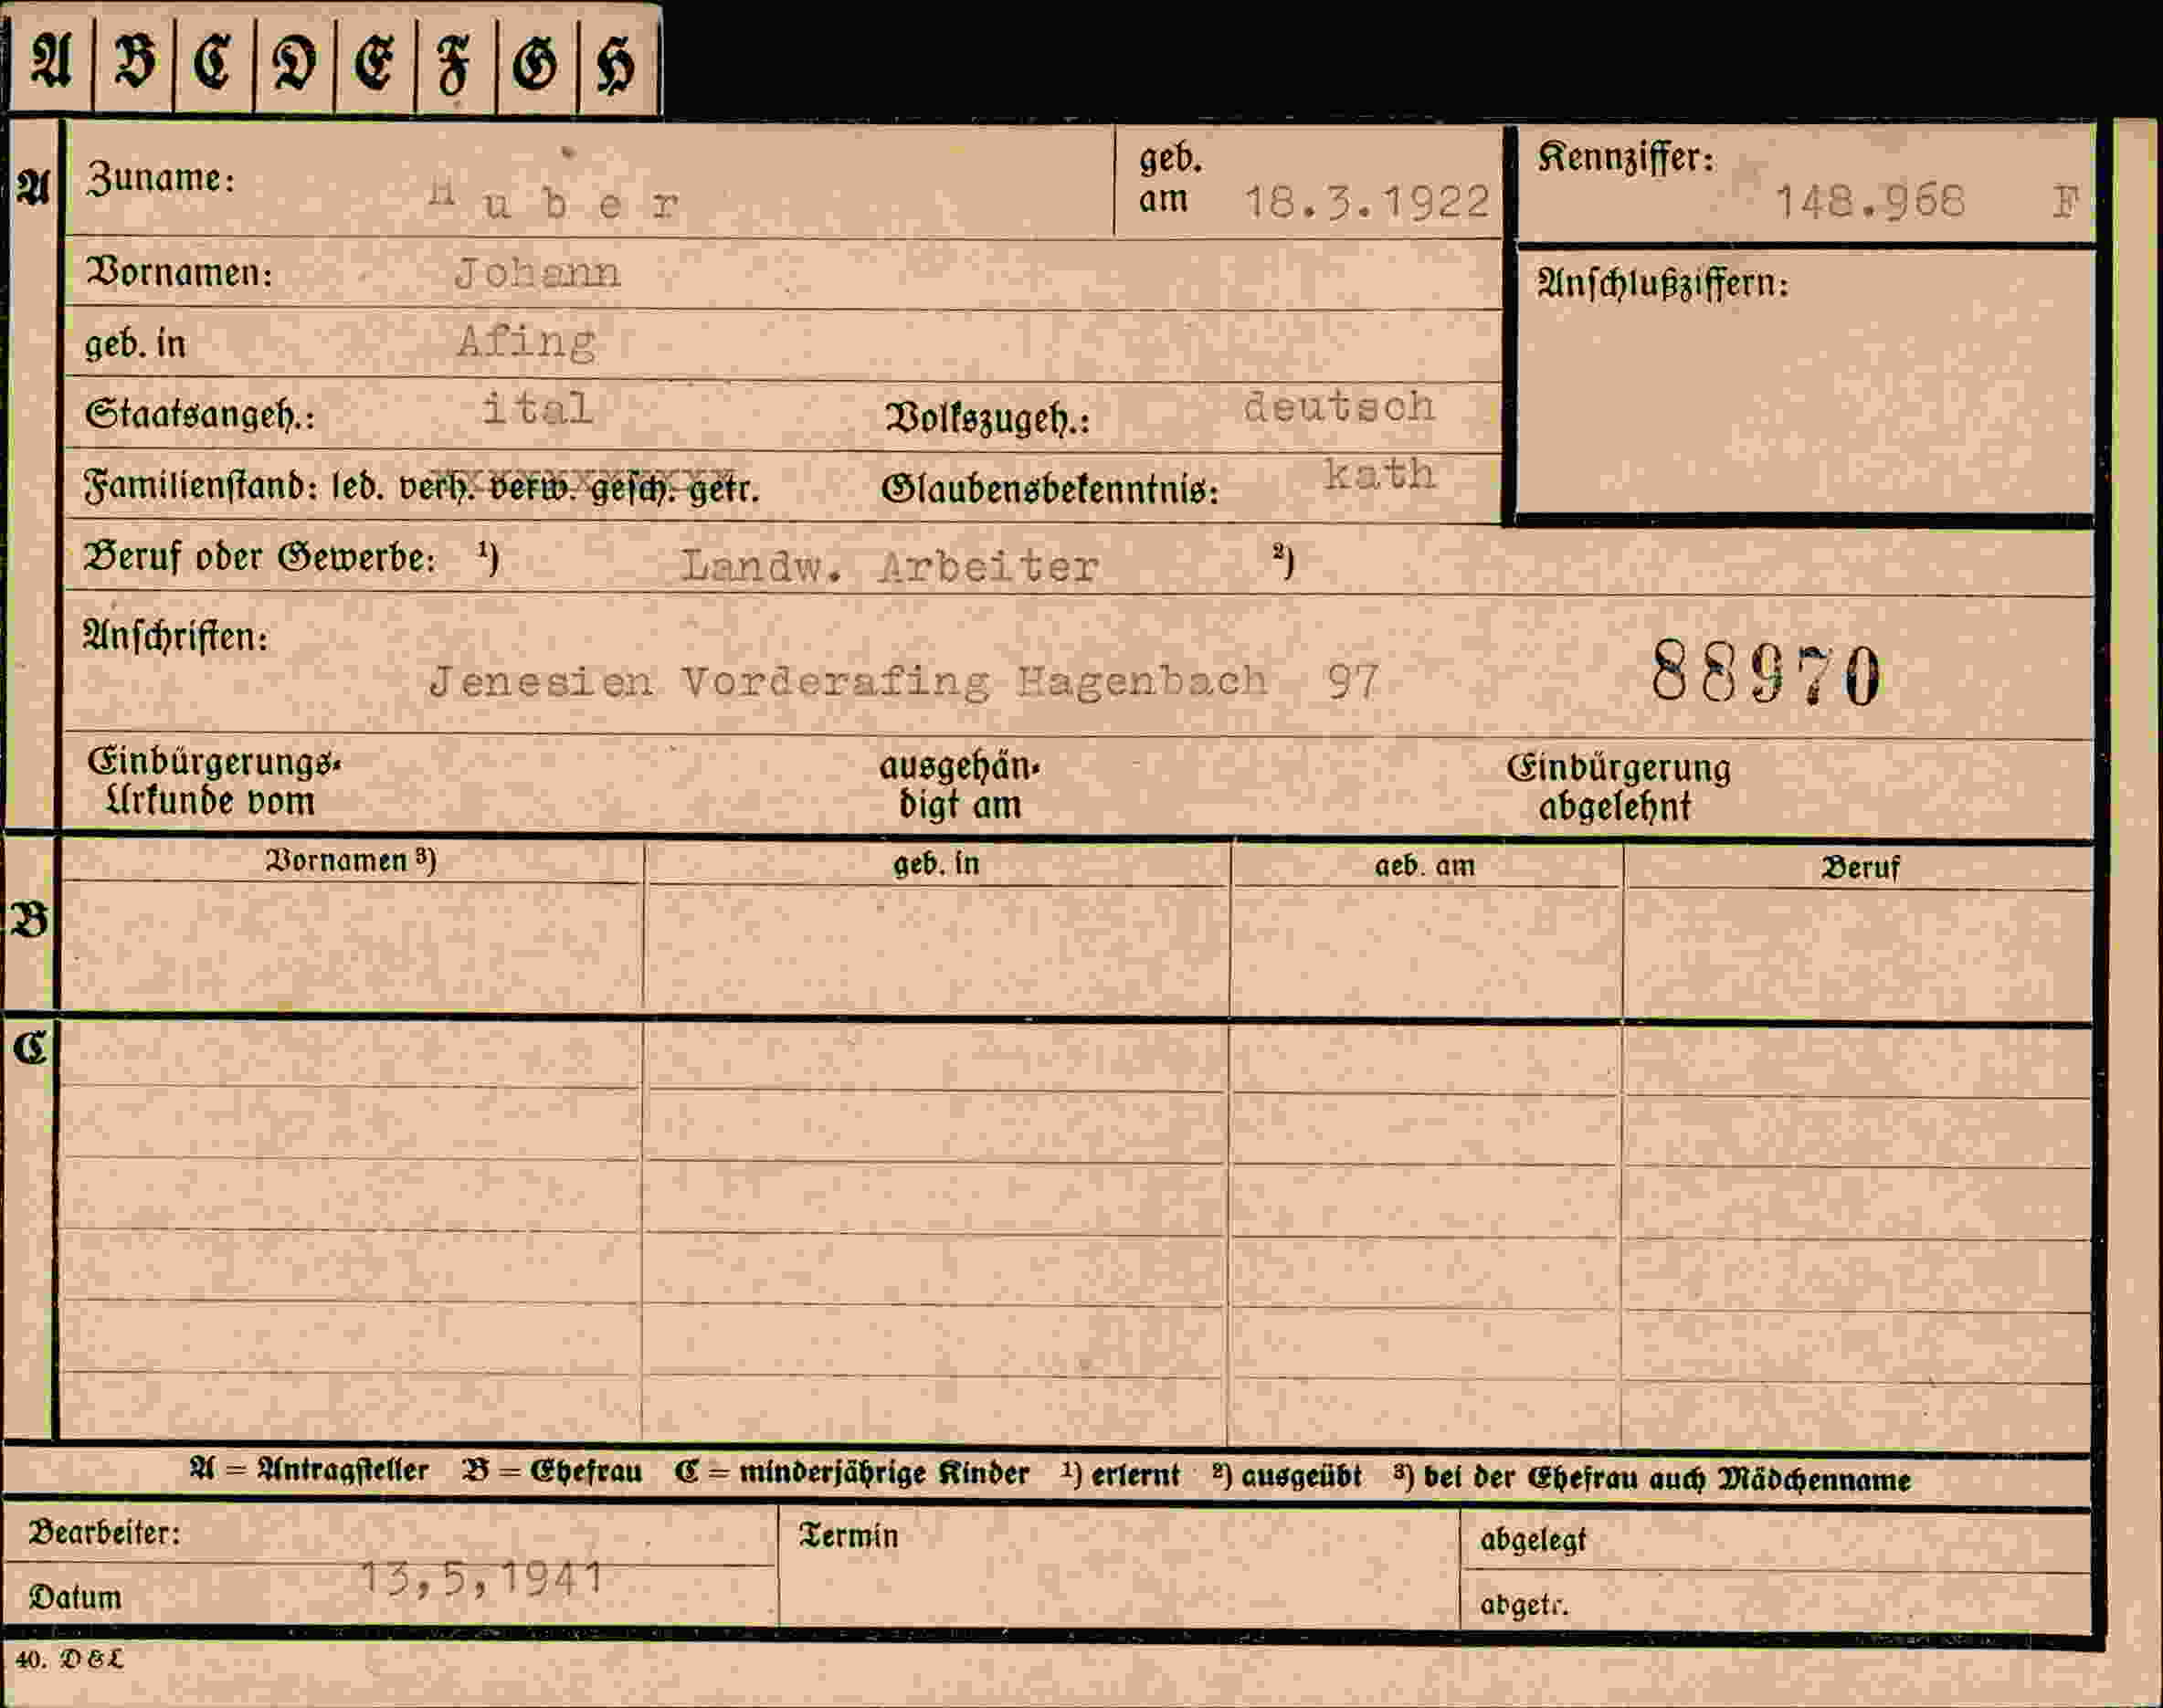 A B C D E F G H
A Zuname: Huber geb. am 18.3.1922 Kennziffer: 148.968 F
Vornamen: Johann Anschlußziffern:
geb. in Afing
Staatsangeh.: ital Volkszugeh.: deutsch
Familienstand: led. verh. verw. gesch. getr. Glaubensbekenntnis: kath
Beruf oder Gewerbe: ¹) Landw. Arbeiter ²)
Anschriften:
Jenesien Vorderafing Hagenbach 97 88970
Einbürgerungs- ausgehän- Einbürgerung
Urkunde vom digt am abgelehnt
Vornamen ³) geb. in geb. am Beruf
B
C
A = Antragsteller B = Ehefrau C = minderjährige Kinder ¹) erlernt ²) ausgeübt ³) bei der Ehefrau auch Mädchenname
Bearbeiter: Termin abgelegt
Datum 13,5,1941 abgetr.
40. D & L